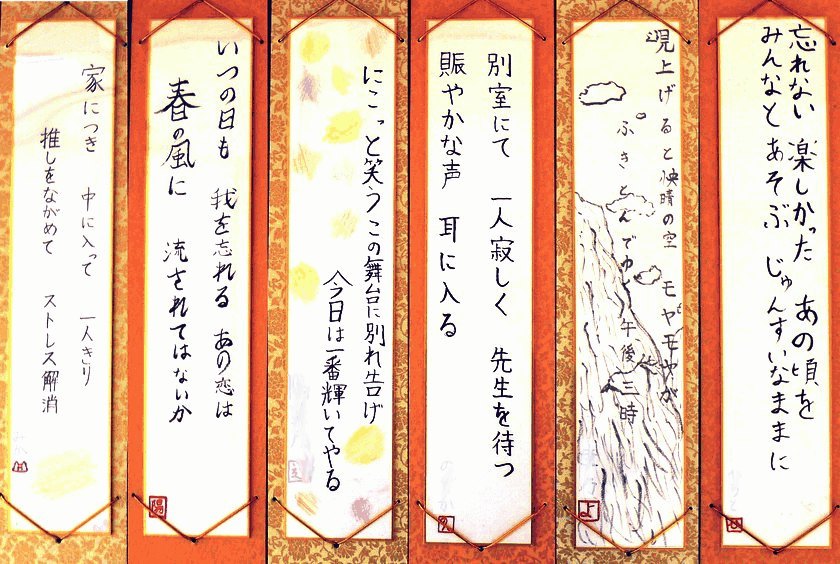 忘れない 楽しかった あの頃を
みんなと あそぶ じゅんすいなままに
見上げると快晴の空 モヤモヤが
ふきとんでゆく 午後三時
別室にて 一人寂しく 先生を待つ
賑やかな声 耳に入る
にこっと笑う この舞台に別れ告げ
今日は一番輝いてやる
いつの日も 我を忘れる あの恋は
春の風に 流されてはないか
家につき 中に入って 一人きり
推しをながめて ストレス解消